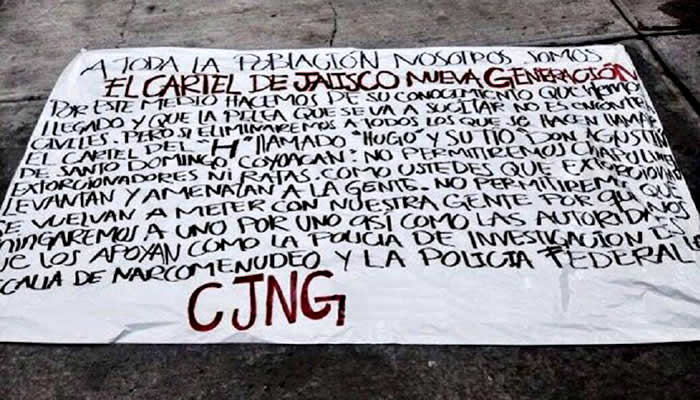 A TODA LA POBLACIÓN NOSOTROS SOMOS
EL CARTEL DE JALISCO NUEVA GENERACIÓN
POR ESTE MEDIO HACEMOS DE SU CONOCIMIENTO QUE HEMOS
LLEGADO Y QUE LA PELEA QUE SE VA A SUCITAR NO ES EN CONTRA
CIVILES. PERO SI ELIMINAREMOS A TODOS LOS QUE SE HACEN LLAMAR
EL CARTEL DEL "H" LLAMADO "HUGO" Y SU TIO "DON AGUSTIN
DE SANTO DOMINGO COYOACAN: NO PERMITIREMOS CHAPULINES
EXTORCIONADORES NI RATAS. COMO USTEDES QUE EXTORCIONAN
LEVANTAN Y AMENAZAN A LA GENTE. NO PERMITIREMOS QUE
SE VUELVAN A METER CON NUESTRA GENTE POR QUE LOS
A UNO POR UNO ASÍ COMO LAS AUTORIDADES
QUE LOS APOYAN COMO LA POLICIA DE INVESTIGACION
FISCALIA DE NARCOMENUDEO Y LA POLICIA FEDERAL
CJNG